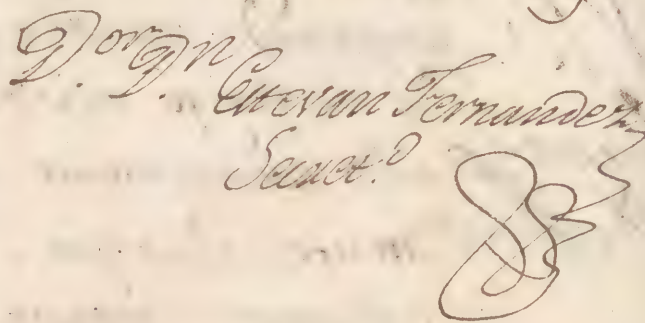 D.or D.n Estevan Fernandez
Secret.o